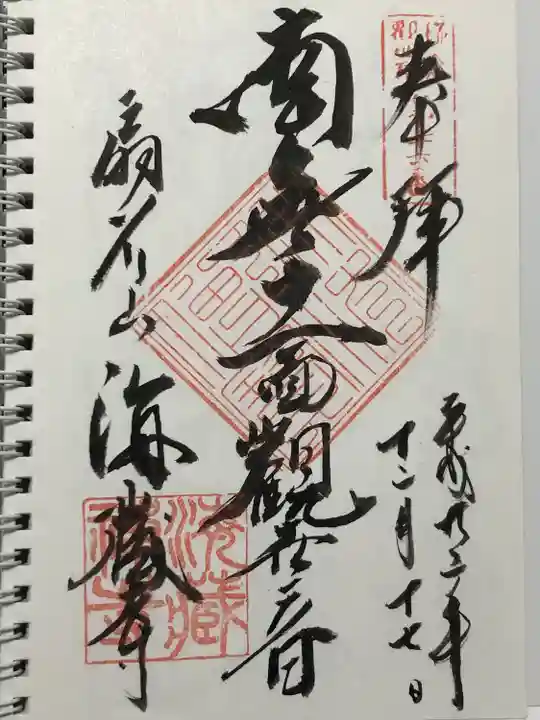 奉拝
平成廿二年
十二月十七日
南無十一面觀世音
扇谷山 海藏寺